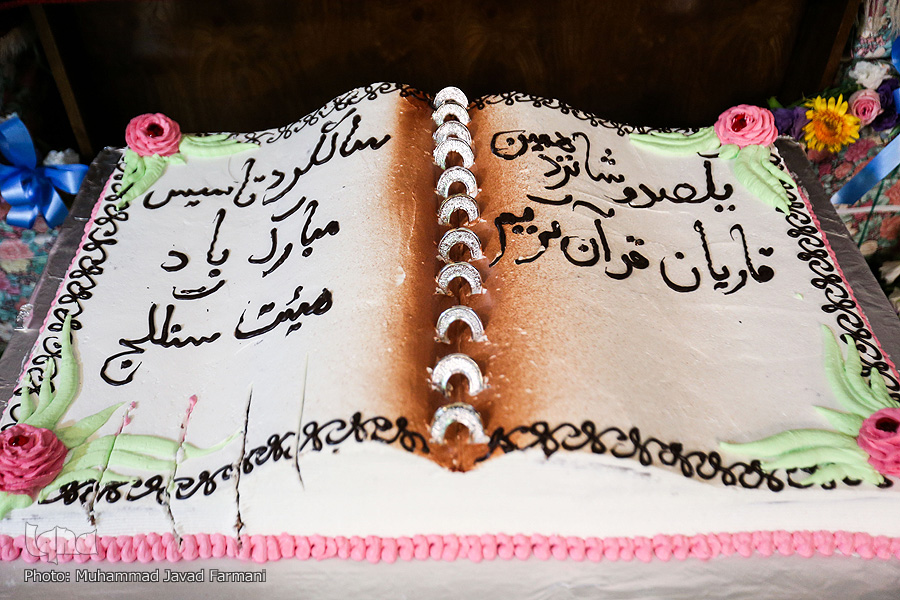 یکصد و شانزدهمین
قاریان قرآن کریم
سالگرد تاسیس
مبارک باد
هیئت سنگلج
iqna
Photo: Muhammad Javad Farmani